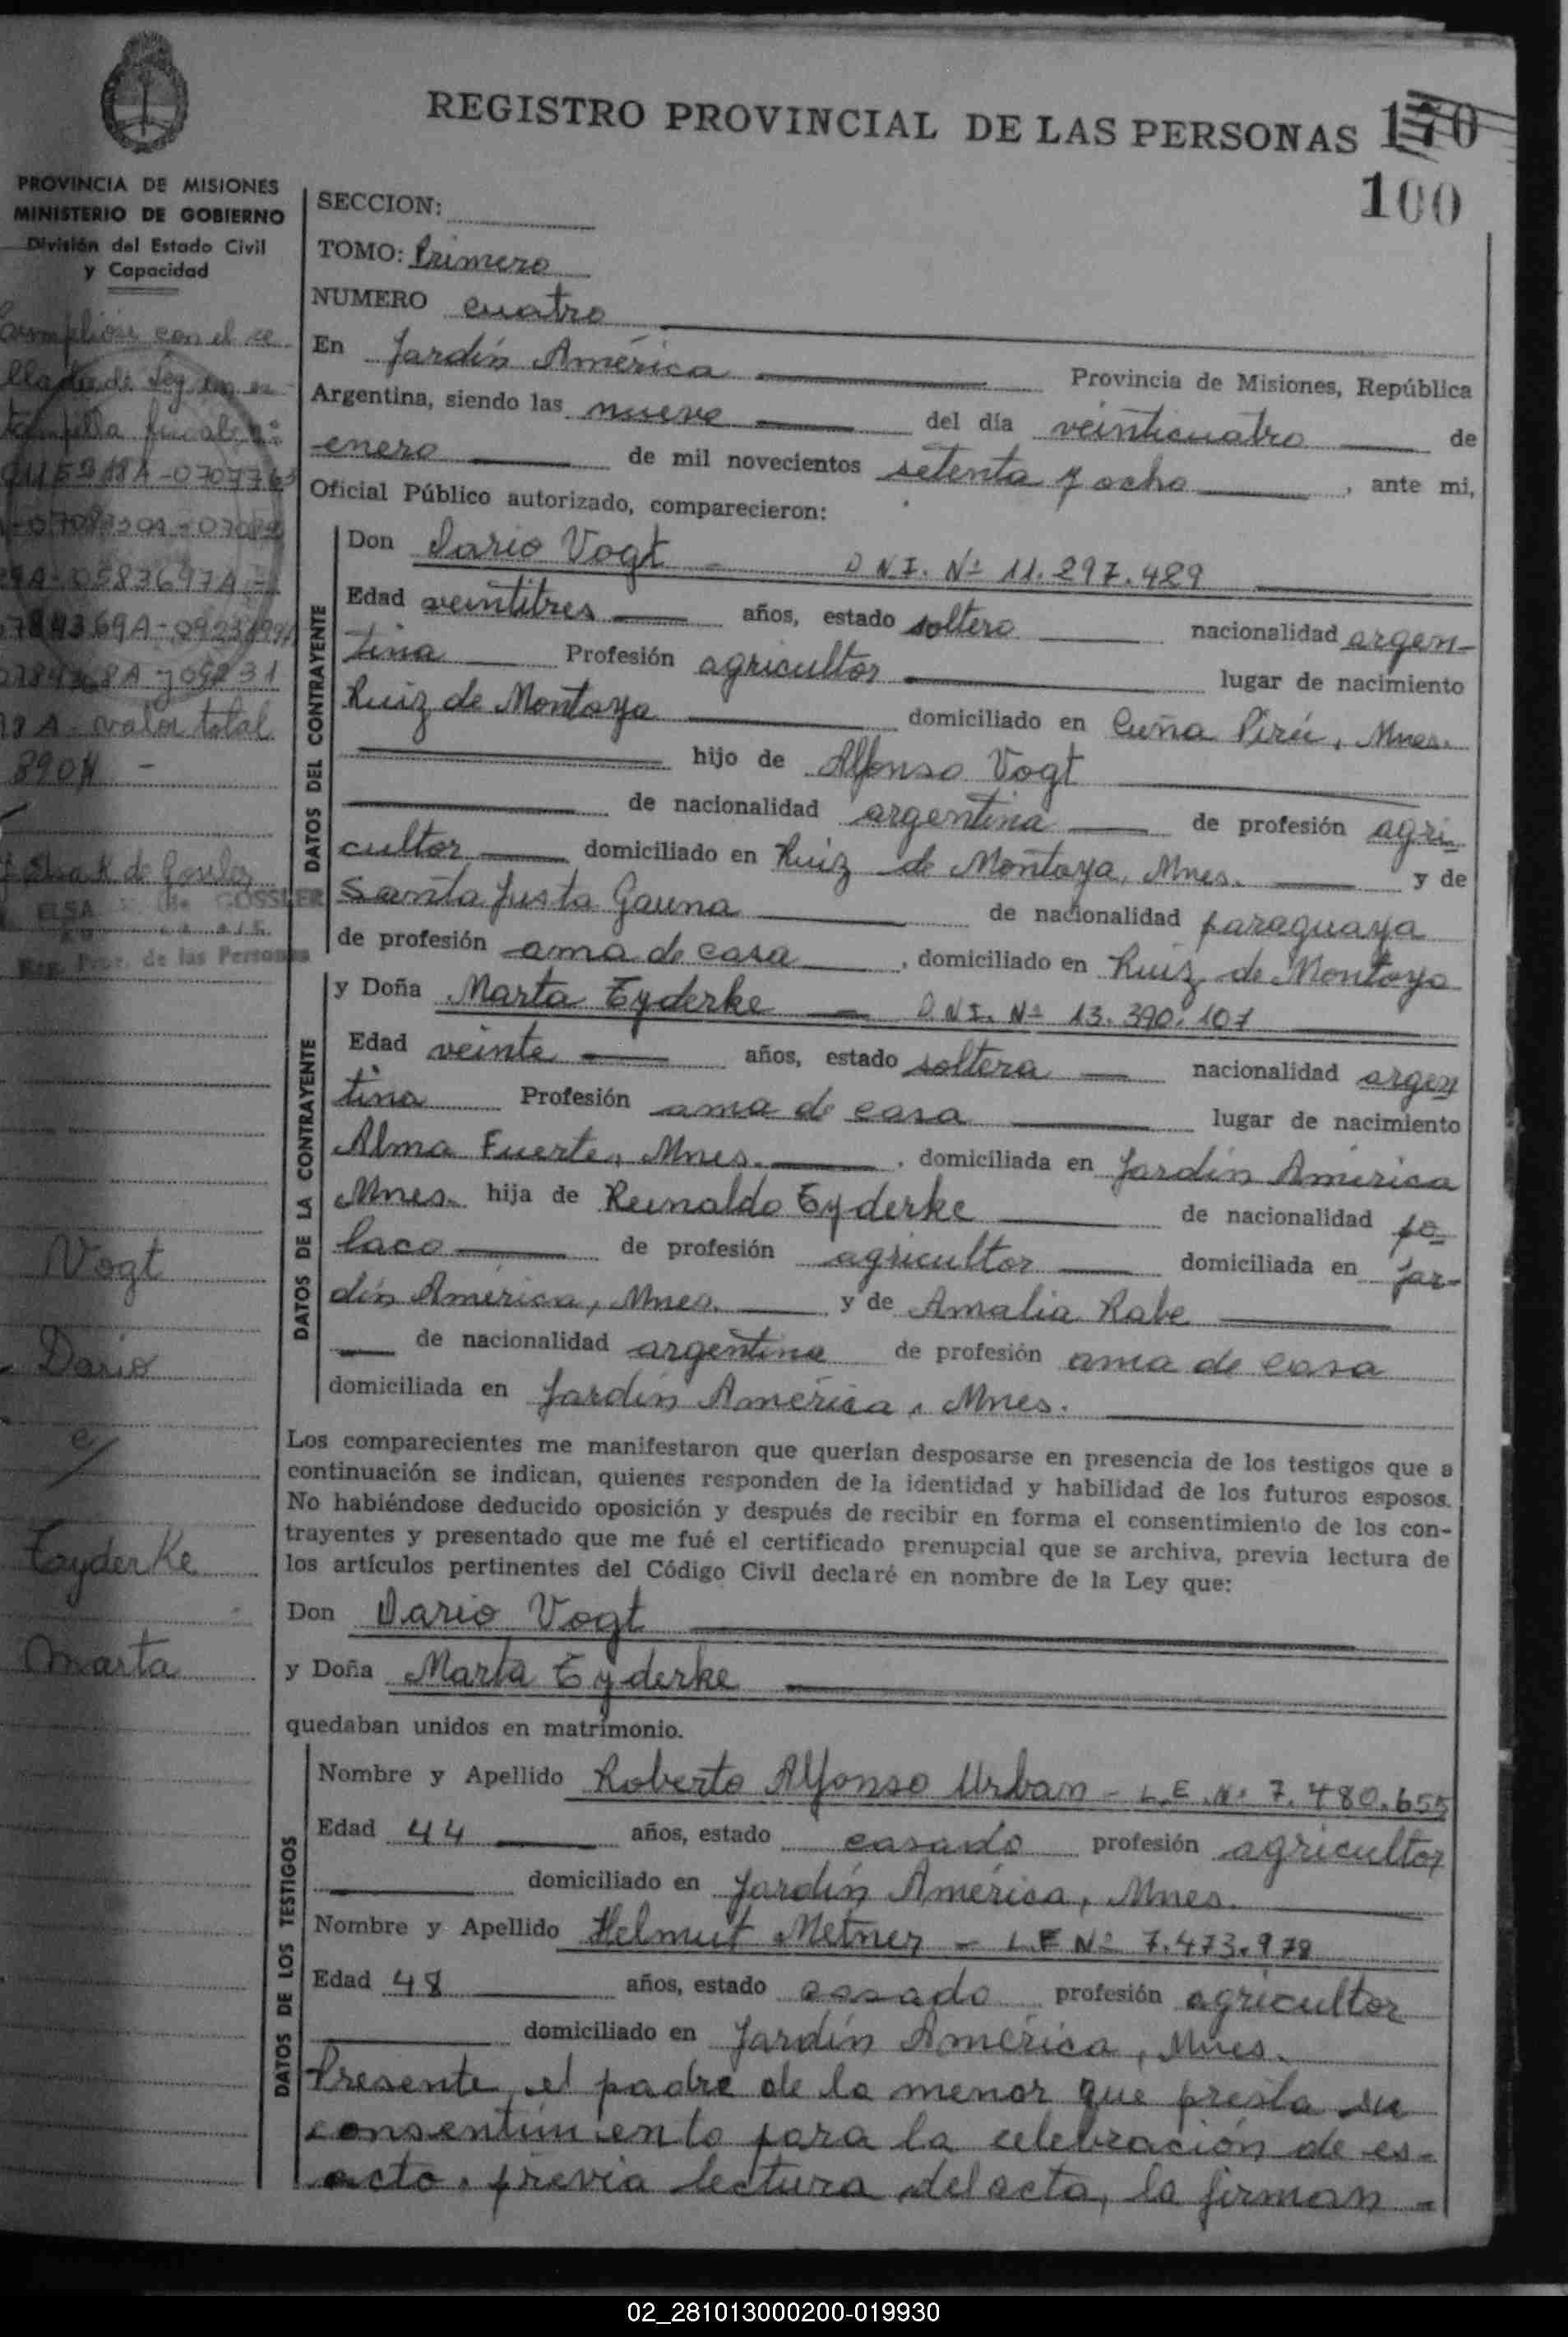 REGISTRO PROVINCIAL DE LAS PERSONAS 170
100
PROVINCIA DE MISIONES
MINISTERIO DE GOBIERNO
División del Estado Civil
y Capacidad
con el se
llado de
valor total
890
ELSA de GOSSLER
Reg. Prov. de las Personas
Vogt
Dario
e/
Eyderke
Marta
SECCION:
TOMO: Primero
NUMERO cuatro
En Jardín América Provincia de Misiones, República
Argentina, siendo las nueve del día veinticuatro de
enero de mil novecientos setenta y ocho, ante mi,
Oficial Público autorizado, comparecieron:
DATOS DEL CONTRAYENTE
Don Dario Vogt - D.N.I. Nº 11.297.489
Edad veintitres años, estado soltero nacionalidad argen-
tina Profesión agricultor lugar de nacimiento
Ruiz de Montoya domiciliado en Cuña Pirú, Mnes.
hijo de Alfonso Vogt
de nacionalidad argentina de profesión agri
cultor domiciliado en Ruiz de Montoya, Mnes. y de
Santa Justa Gauna de nacionalidad paraguaya
de profesión ama de casa, domiciliado en Ruiz de Montoya
DATOS DE LA CONTRAYENTE
y Doña Marta Eyderke D.N.I. Nº 13.390.107
Edad veinte años, estado soltera nacionalidad argen
tina Profesión ama de casa lugar de nacimiento
Alma Fuerte, Mnes., domiciliada en Jardín América
Mnes. hija de Reinaldo Eyderke de nacionalidad po
laco de profesión agricultor domiciliada en Jar-
dín América, Mnes. y de Amalia Rabe
de nacionalidad argentina de profesión ama de casa
domiciliada en Jardín América, Mnes.
Los comparecientes me manifestaron que querían desposarse en presencia de los testigos que a
continuación se indican, quienes responden de la identidad y habilidad de los futuros esposos.
No habiéndose deducido oposición y después de recibir en forma el consentimiento de los con-
trayentes y presentado que me fué el certificado prenupcial que se archiva, previa lectura de
los artículos pertinentes del Código Civil declaré en nombre de la Ley que:
Don Dario Vogt
y Doña Marta Eyderke
quedaban unidos en matrimonio.
DATOS DE LOS TESTIGOS
Nombre y Apellido Roberto Alfonso Urban - L.E. Nº 7.480.655
Edad 44 años, estado casado profesión agricultor
domiciliado en Jardín América, Mnes.
Nombre y Apellido Helmut Metner - L.E Nº 7.473.978
Edad 48 años, estado casado profesión agricultor
domiciliado en Jardín América, Mnes.
Presente el padre de la menor que presta su
consentimiento para la celebración de es-
acto. previa lectura del acta, la firman -
02_281013000200-019930